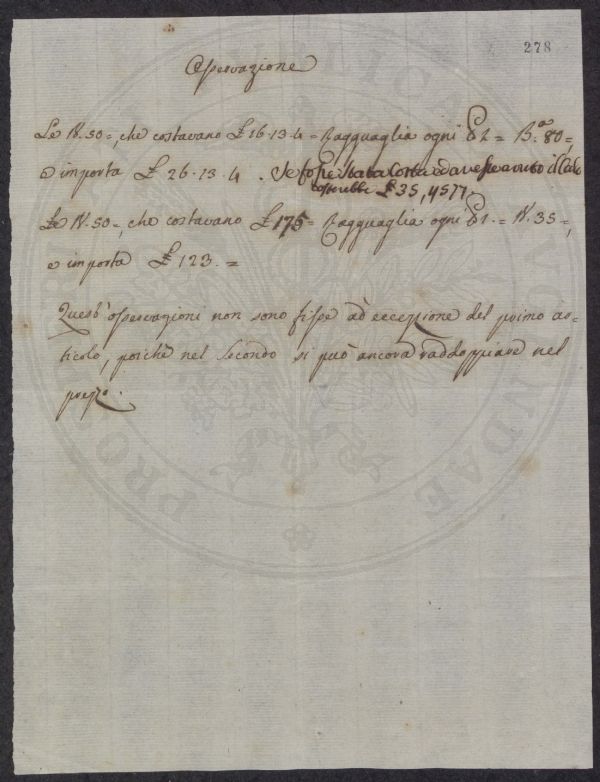 278
Osservazione
Le N. 50 =, che costavano £ 16.13.4 = Ragguaglia ogni 2 = 80 =,
e importa £ 26.13.4. Se fosse stata Cotta ed avesse avuto il Calo
costerebbe £ 35,4577.
Le N. 50 =, che costavano £ 175 = Ragguaglia ogni = N. 35 =,
e importa £ 123. =
Quest'osservazioni non sono fisse ad eccezione del primo ar=
ticolo, poichè nel Secondo si può ancora raddoppiare nel
prezzo.